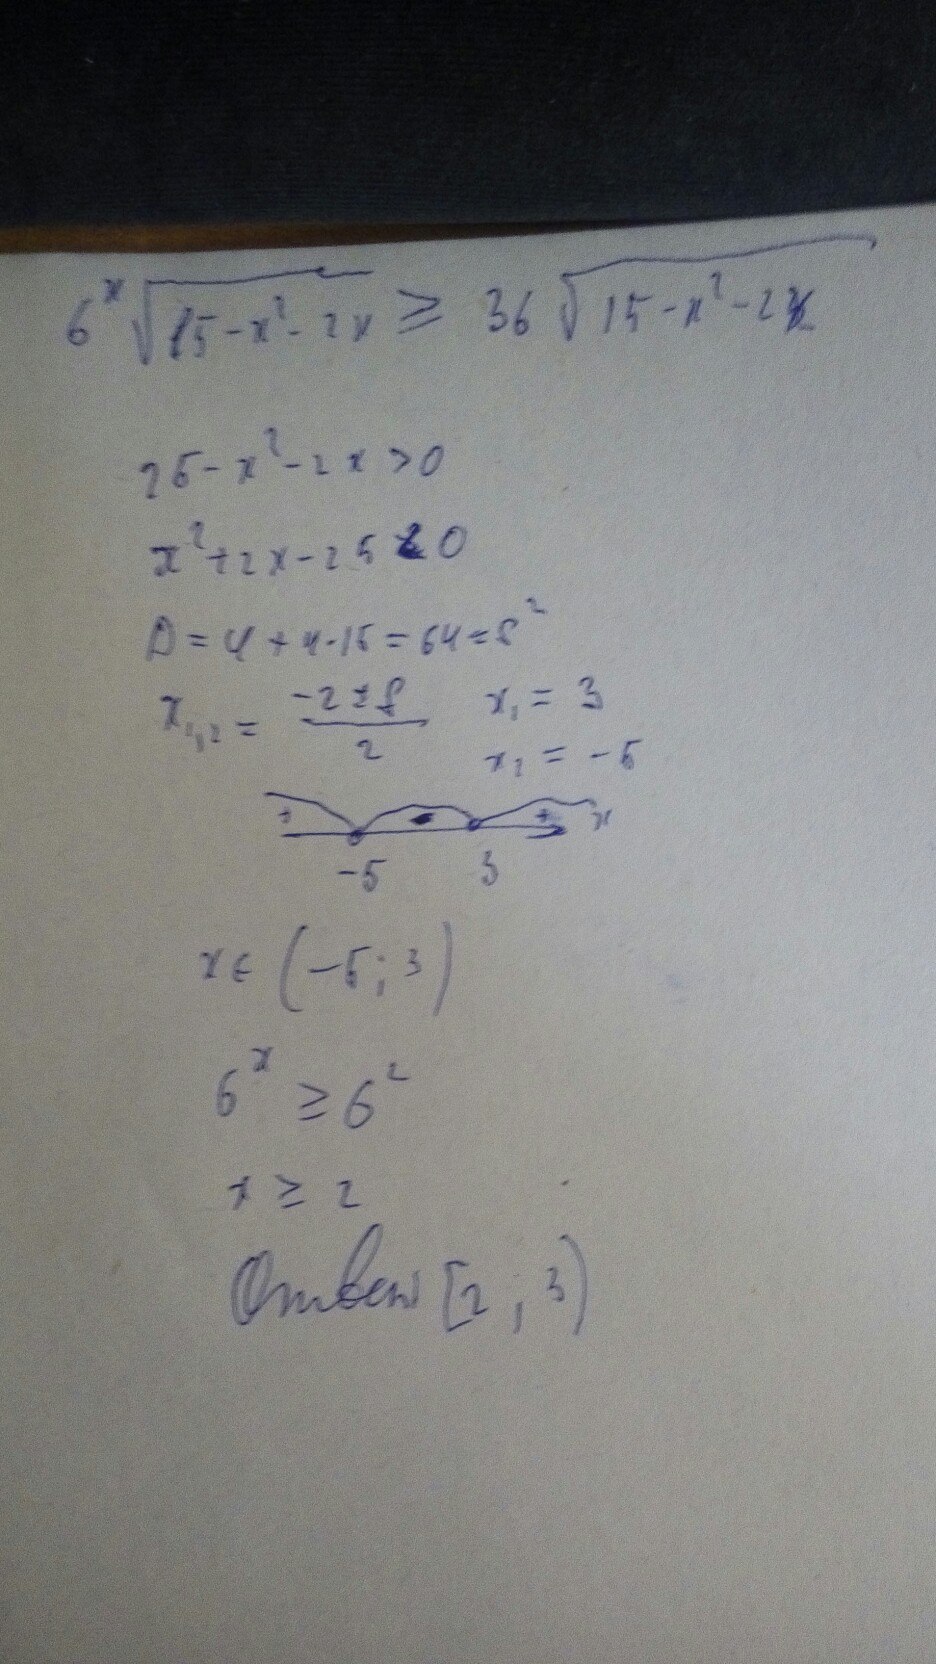 6^x √(15-x²-2x) ≥ 36 √(15-x²-2x)
15-x²-2x>0
x²+2x-15<0
D=4+4·15=64=8²
x₁,₂ = (-2±8)/2 x₁ = 3
x₂ = -5
+ - + x
-5 3
x∈(-5;3)
6^x ≥ 6²
x ≥ 2
Ответ [2;3)